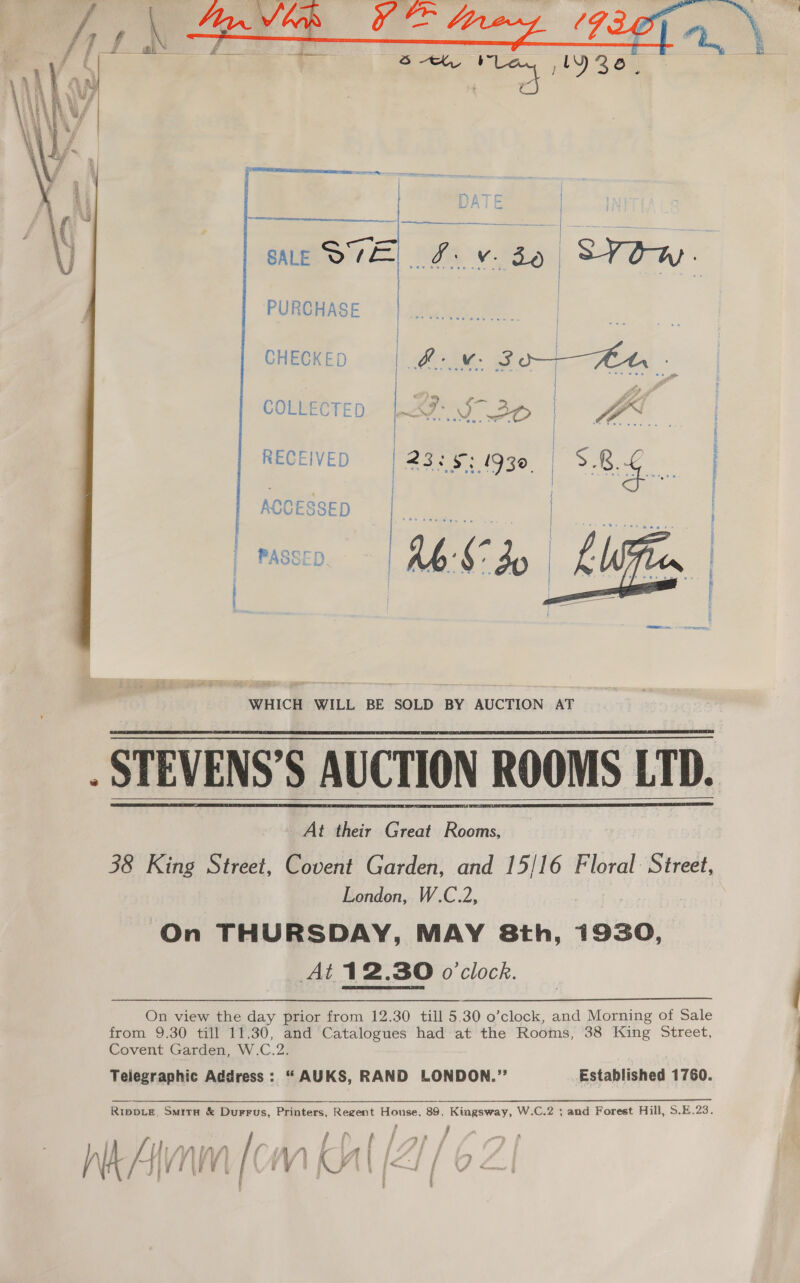 8th May 1930
8th May, 1930.
DATE INITIALS
SALE STE 8. v. 30 SYOW.
PURCHASE
CHECKED 8. v. 30
COLLECTED 5 30
RECEIVED 23: 5: 1930. S.B.G
ACCESSED
PASSED. 26.5.30
WHICH WILL BE SOLD BY AUCTION AT
STEVENS'S AUCTION ROOMS LTD.
At their Great Rooms,
38 King Street, Covent Garden, and 15/16 Floral Street,
London, W.C.2,
On THURSDAY, MAY 8th, 1930,
At 12.30 o'clock.
On view the day prior from 12.30 till 5.30 o'clock, and Morning of Sale
from 9.30 till 11.30, and Catalogues had at the Rooms, 38 King Street,
Covent Garden, W.C.2.
Telegraphic Address : “ AUKS, RAND LONDON.” Established 1760.
RIDDLE, SMITH & DUFFUS, Printers, Regent House, 89, Kingsway, W.C.2 ; and Forest Hill, S.E.23.